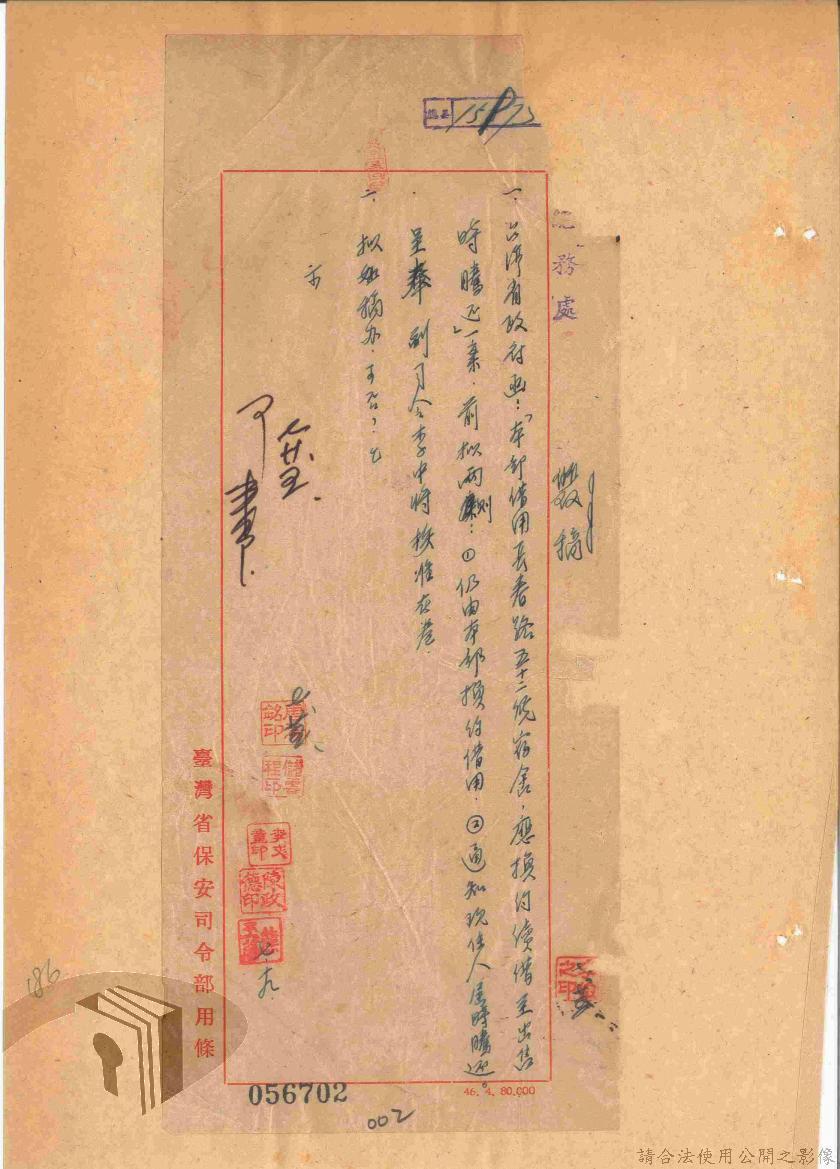 總務處
簽稿
一、台灣省政府函:「本部借用長春路五十二號宿舍,應換約續借至出售
時騰还」一案.前擬兩則:①仍由本部換約借用.②通知現住人屆時騰还。
呈奉副司令李中將核准在卷.
二、擬如稿办.可否?乞
示
七、九
臺灣省保安司令部用條
056702
46. 4. 80,000
002
186
請合法使用公開之影像